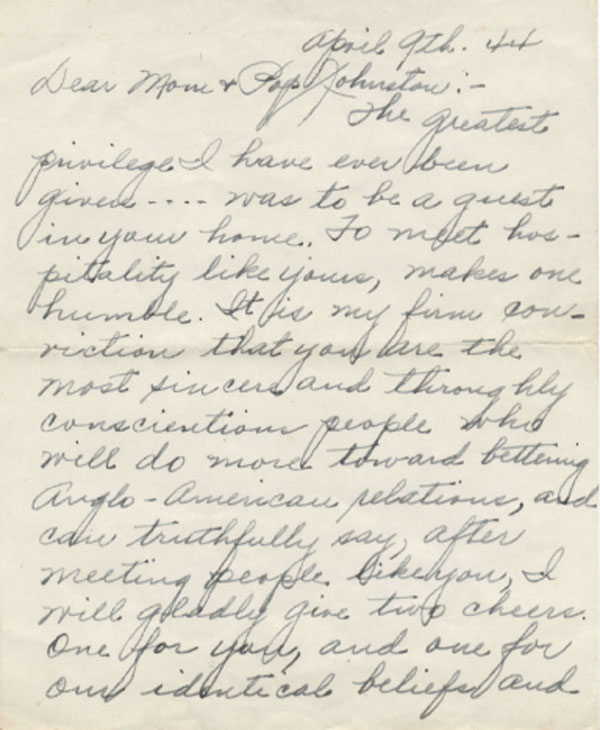 April 9th. 44
Dear Mom & Pop Johnston:-
The greatest
privilege I have ever been
given---- was to be a guest
in your home. To meet hos-
pitality like yours, makes one
humble. It is my firm con-
viction that you are the
most sincere and throughly
conscientious people who
will do more toward bettering
Anglo-American relations, and
can truthfully say, after
meeting people like you, I
will gladly give two cheers.
One for you, and one for
our identical beliefs and